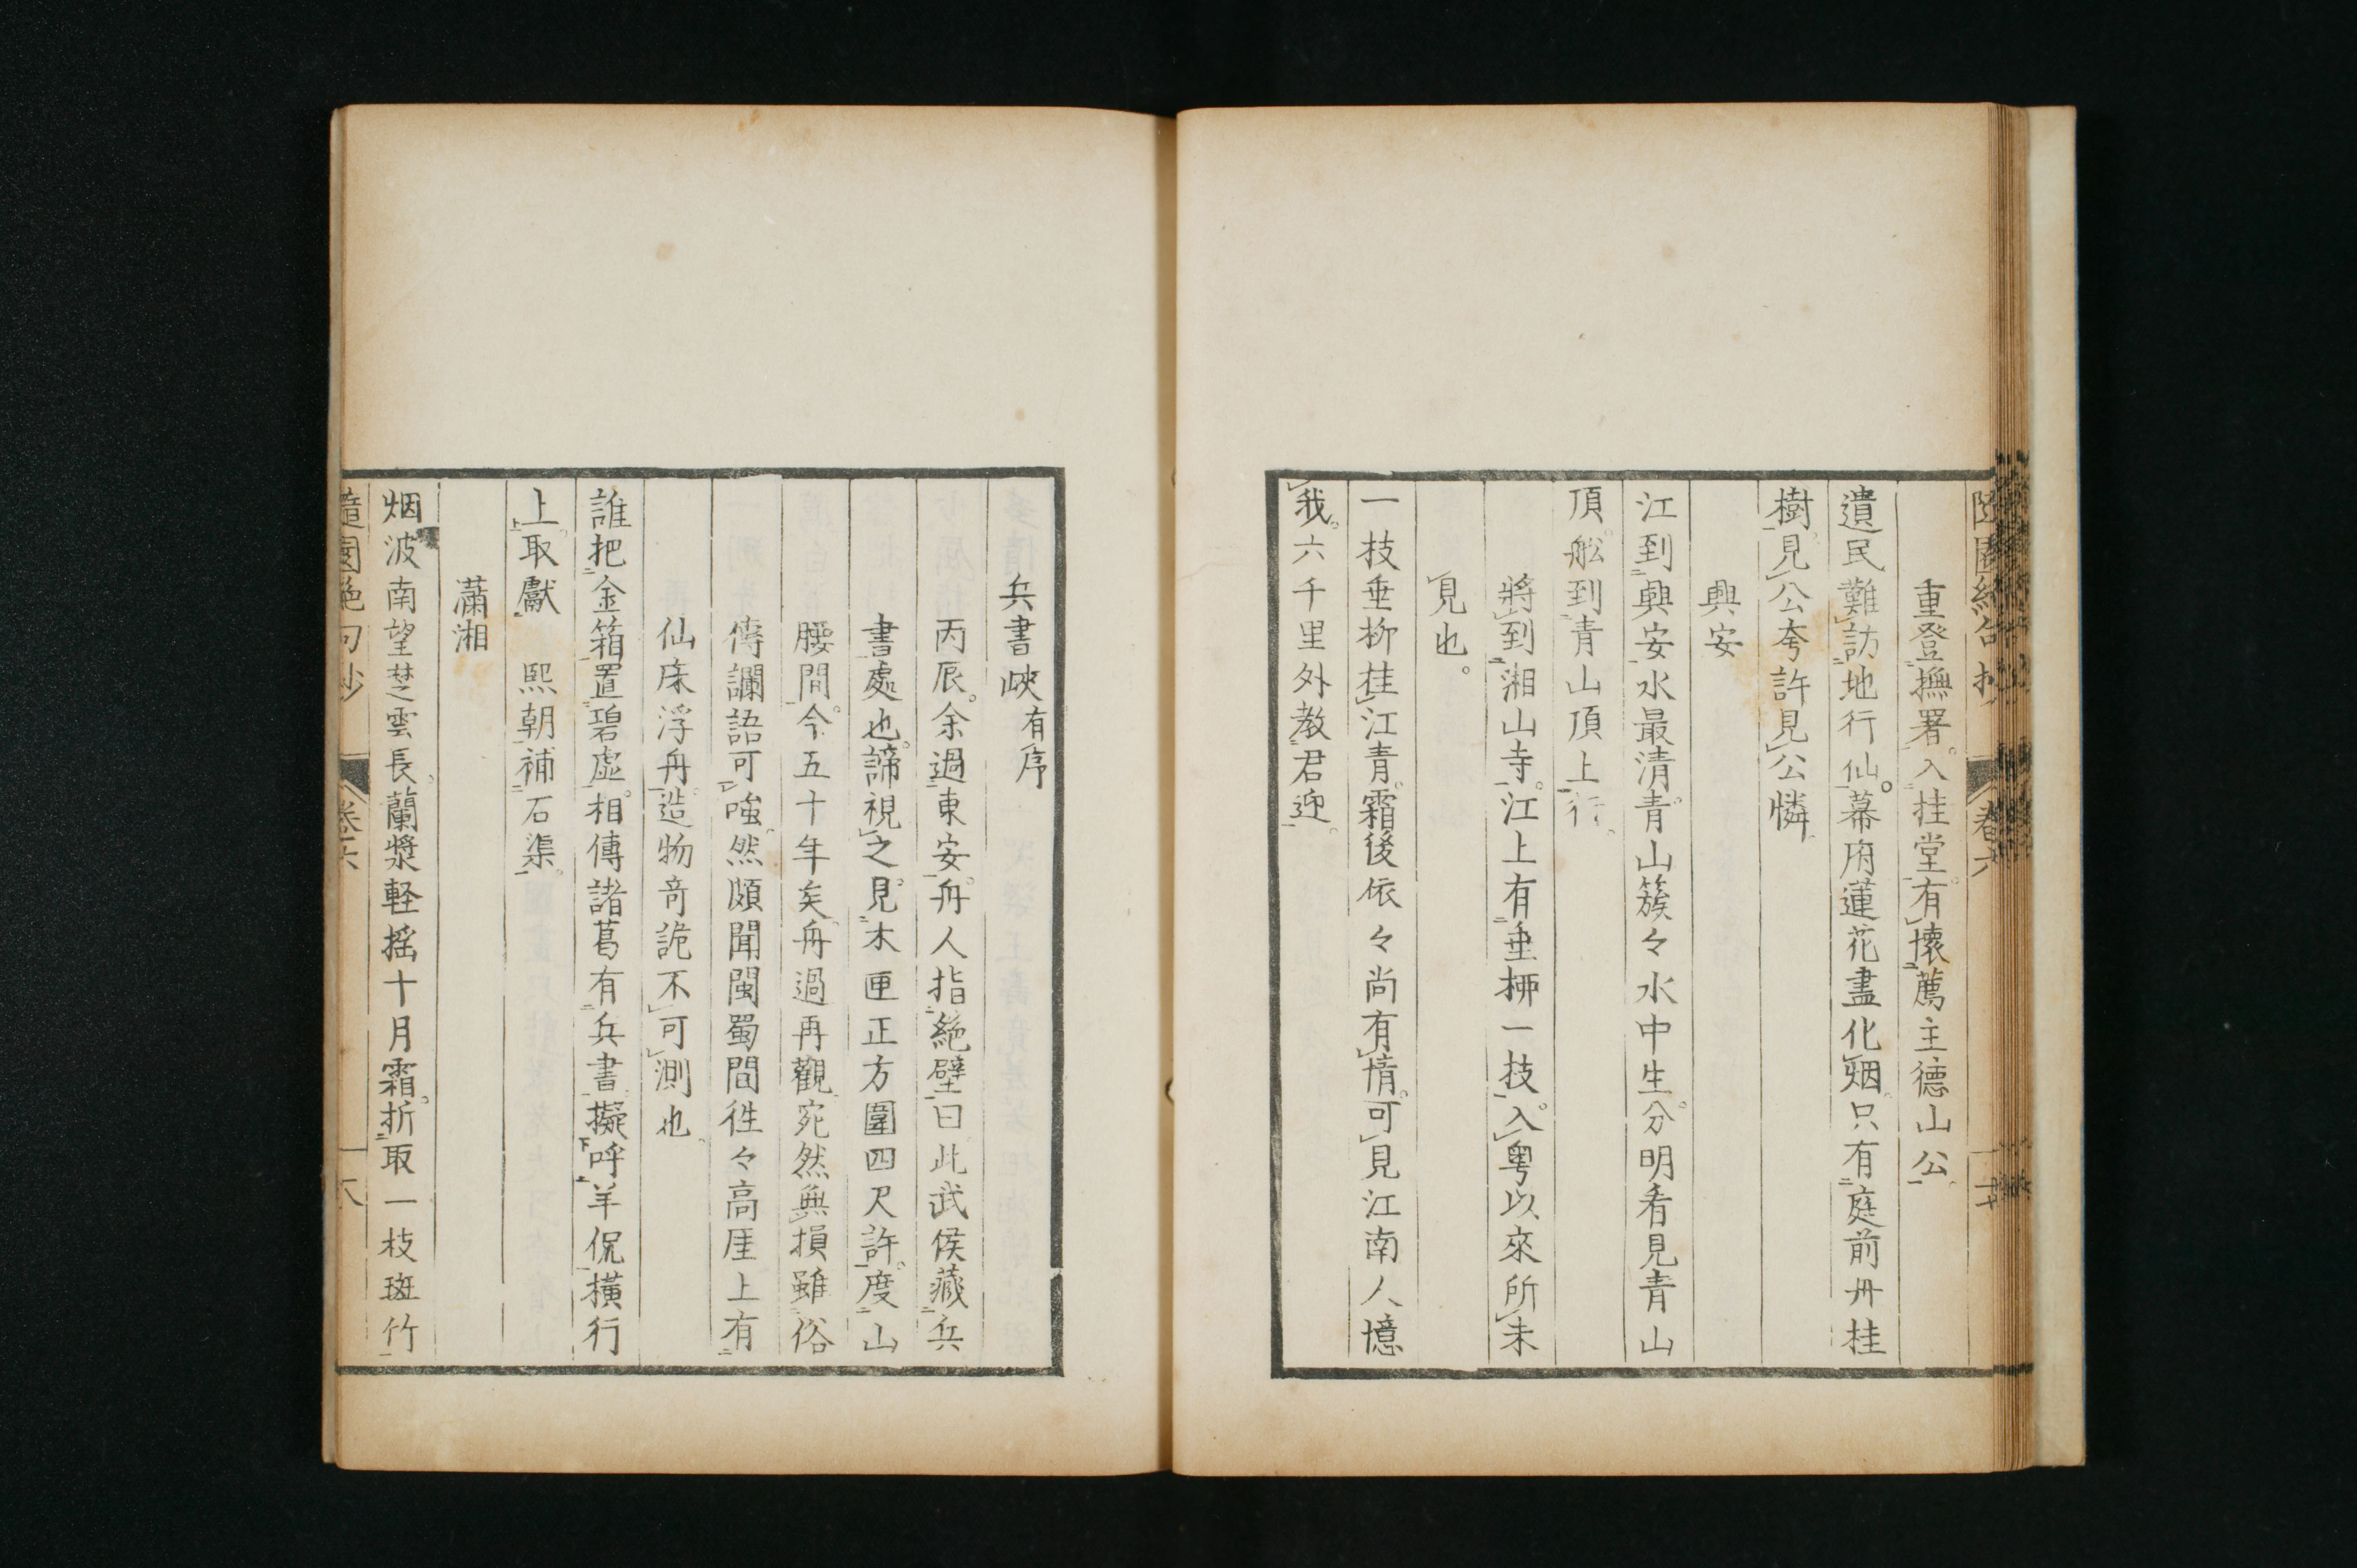 隨園絕句抄 卷六
重登撫署。入桂堂。有懷薦主德山公
遺民難訪地行仙。幕府蓮花盡化烟。只有庭前丹桂
樹。見公夸許見公憐。
興安
江到興安水最清。青山簇々水中生。分明看見青山
頂。舩到青山頂上行。
將到湘山寺。江上有垂桺一技。入粤以來所未
見也。
一技垂柳挂江青。霜後依々尚有情。可見江南人憶
我。六千里外教君迎。
兵書峽有序
丙辰。余過東安。舟人指絕壁曰。此武侯藏兵
書處也。諦視之。見木匣正方圍四尺許。度山
腰間。今五十年矣。舟過再觀。宛然無損。雖俗
傳讕語可嗤。然頗聞閩蜀間徃々高厓上有
仙床浮舟。造物奇詭不可測也。
誰把金箱置碧虛。相傳諸葛有兵書。擬呼羊侃橫行
上。取獻熙朝補石渠。
瀟湘
烟波南望楚雲長。蘭槳軽搖十月霜。折取一枝斑竹
隨園絕句抄 卷六